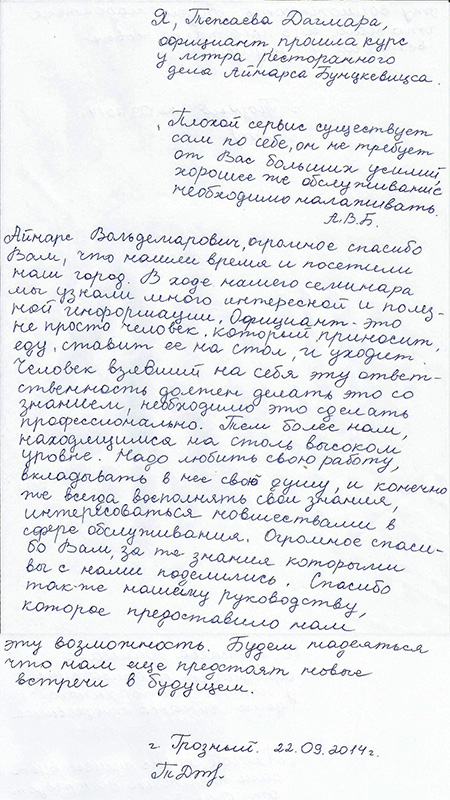 Я, Тепсаева Дагмара,
официант прошла курс
у мэтра ресторанного
дела Айнарса Бунцкевицса.
Плохой сервис существует
сам по себе, он не требует
от Вас больших усилий,
хорошее же обслуживание
необходимо налаживать.
А.В.Б.
Айнарс Вольдемарович, огромное спасибо
Вам, что нашли время и посетили
наш город. В ходе нашего семинара
мы узнали много интересной и полез-
ной информации. Официант - это
не просто человек, который приносит,
еду, ставит ее на стол, и уходит.
Человек взявший на себя эту ответ-
ственность должен делать это со
знанием, необходимо это сделать
профессионально. Тем более нам,
находящимся на столь высоком
уровне. Надо любить свою работу,
вкладывать в нее свою душу, и конечно
же всегда восполнять свои знания,
интересоваться новшествами в
сфере обслуживания. Огромное спаси-
бо Вам, за те знания которыми
вы с нами поделились. Спасибо
так-же нашему руководству,
которое предоставило нам
эту возможность. Будем надеяться
что нам еще предстоят новые
встречи в будущем.
г. Грозный. 22.09.2014г.